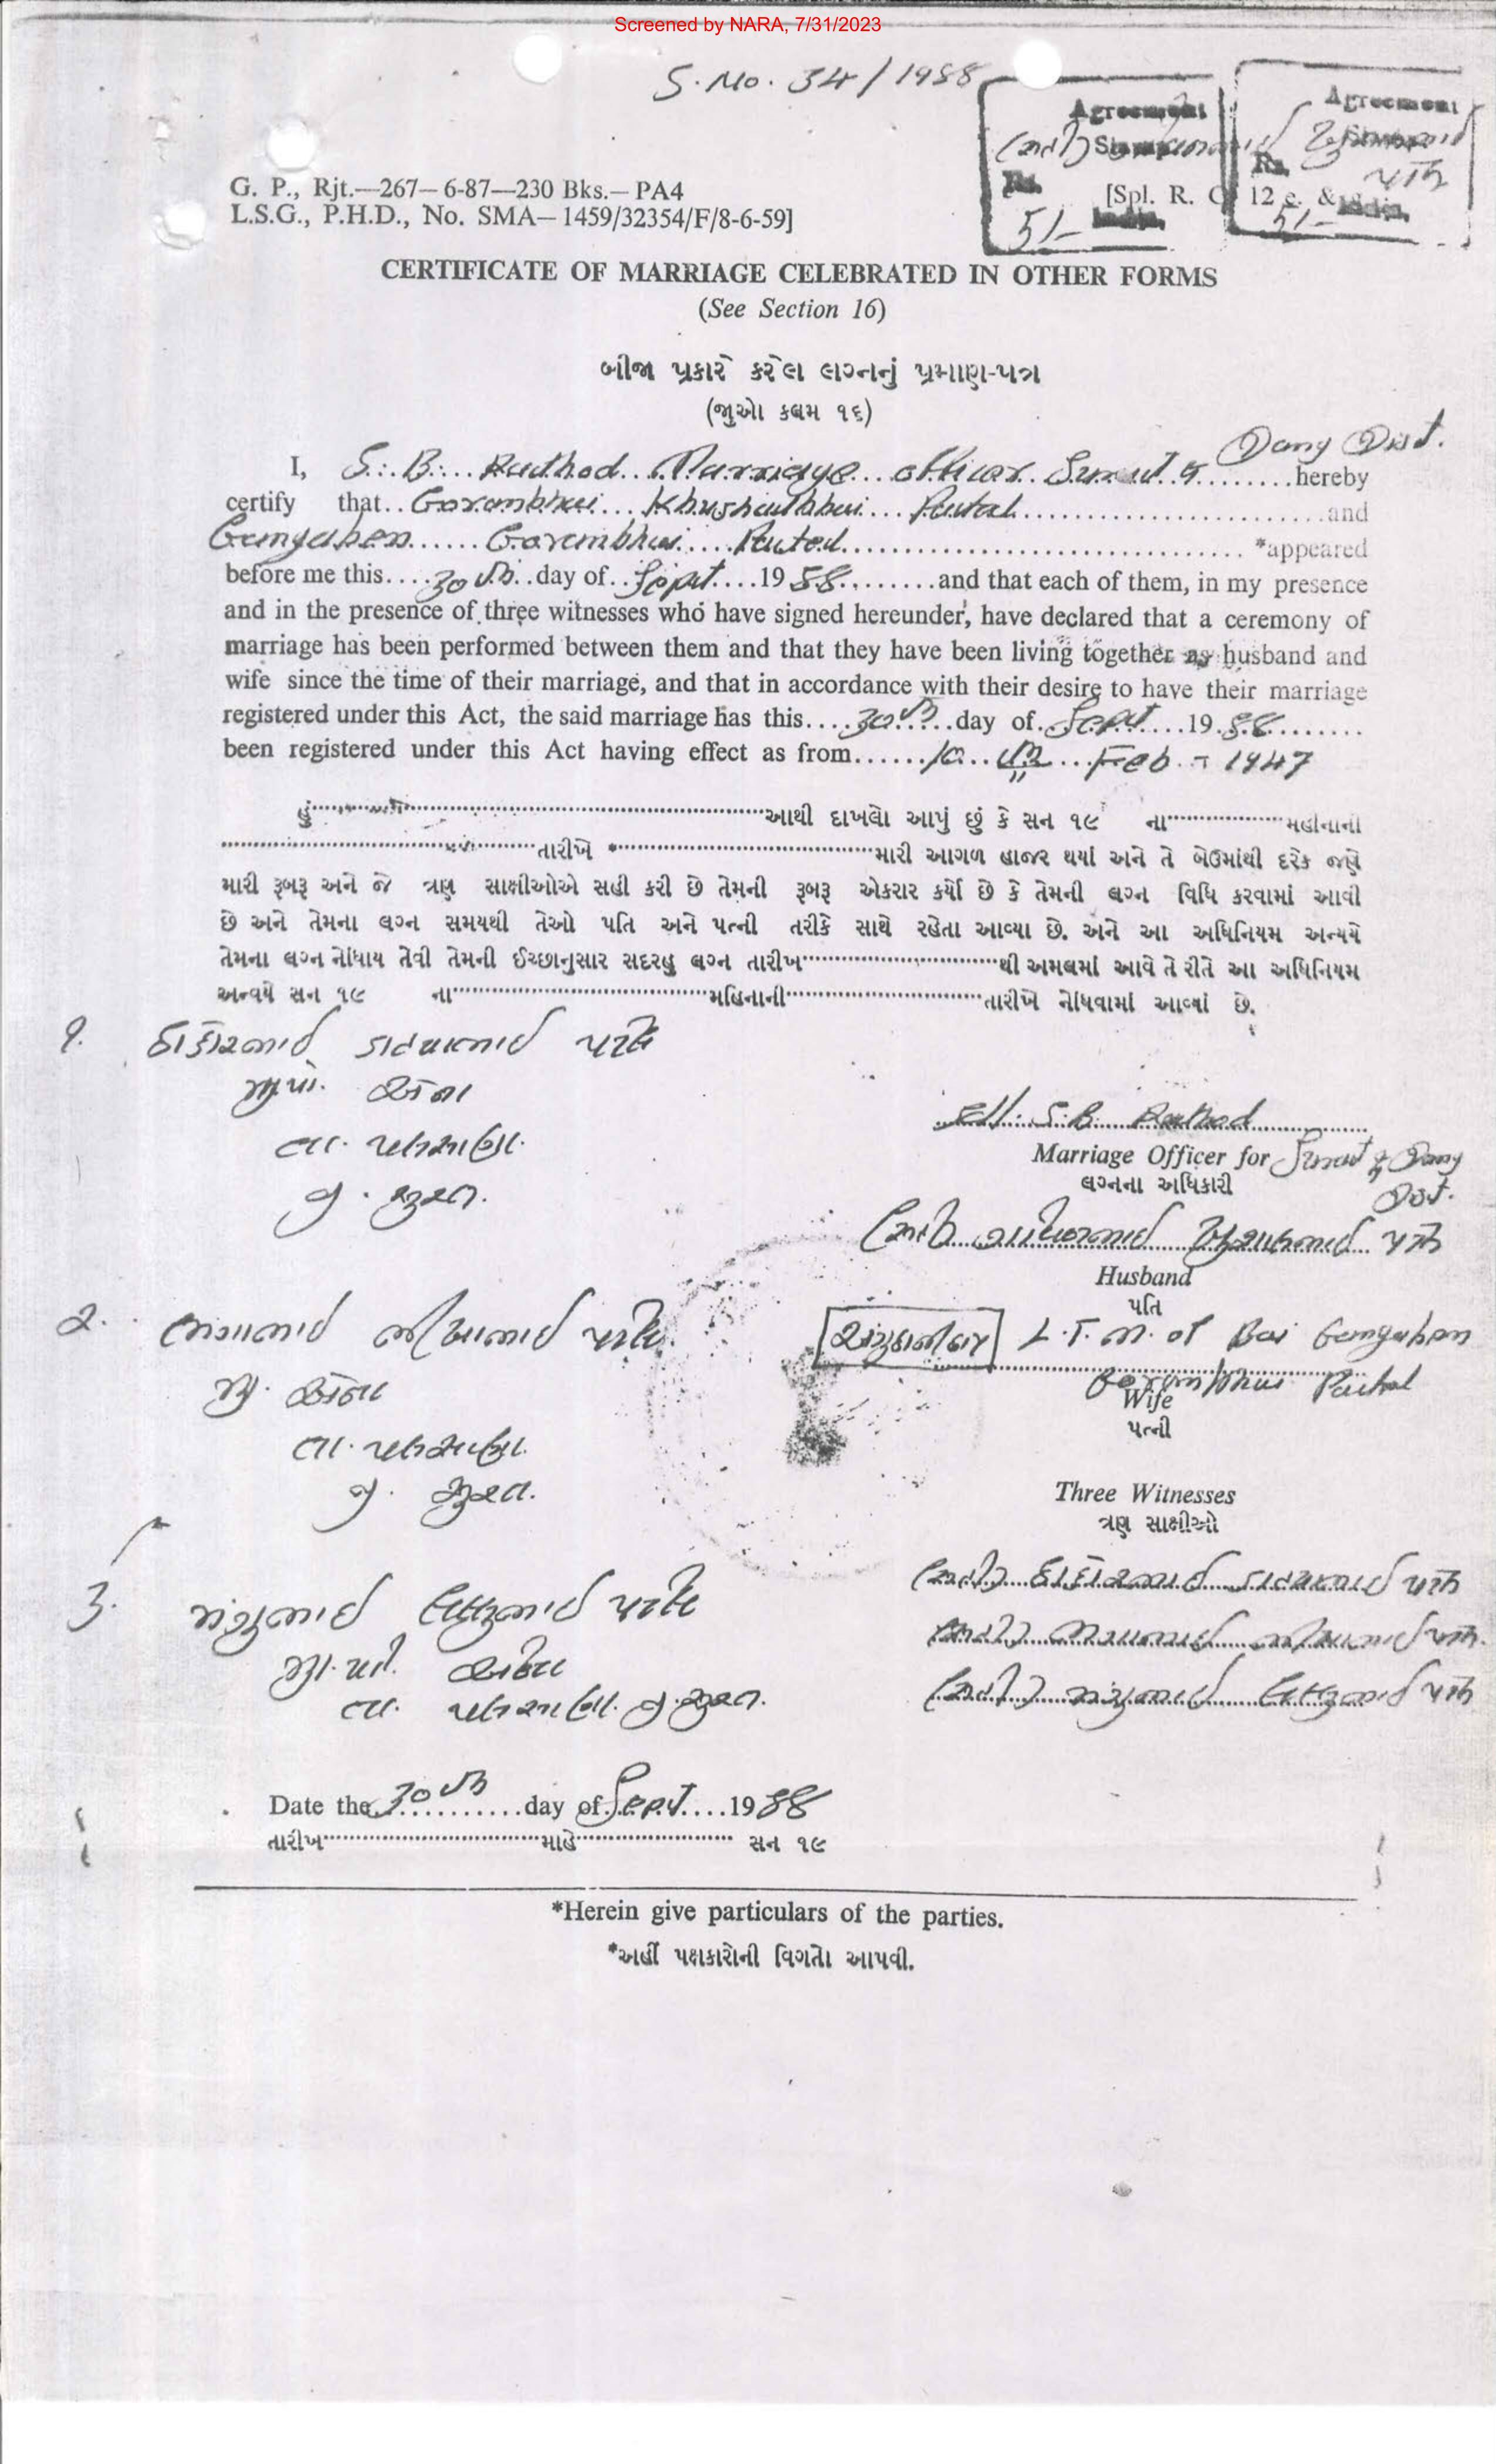 Screened by NARA, 7/31/2023
S. No. 34/1988
Agreement
Agreement
Rs.
Rs.
5/-
5/-
India
India
G. P., Rjt.—267—6-87—230 Bks.—PA4
[Spl. R. C. 12 e. &
L.S.G., P.H.D., No. SMA—1459/32354/F/8-6-59]
CERTIFICATE OF MARRIAGE CELEBRATED IN OTHER FORMS
(See Section 16)
બીજા પ્રકારે કરેલ લગ્નનું પ્રમાણ-પત્ર
(જુઓ કલમ ૧૬)
Dang Dist.
I, S. B. Rathod Marriage officer Surat & hereby
certify that Khushalbhai and
Gangaben Patel *appeared
before me this 30th day of Sept 1988 and that each of them, in my presence
and in the presence of three witnesses who have signed hereunder, have declared that a ceremony of
marriage has been performed between them and that they have been living together as husband and
wife since the time of their marriage, and that in accordance with their desire to have their marriage
registered under this Act, the said marriage has this 30th day of Sept 1988
been registered under this Act having effect as from 10 th Feb - 1947
હું આથી દાખલો આપું છું કે સન ૧૯ ના મહીનાની
તારીખે * મારી આગળ હાજર થયાં અને તે બેઉમાંથી દરેક જણે
મારી રૂબરૂ અને જે ત્રણ સાક્ષીઓએ સહી કરી છે તેમની રૂબરૂ એકરાર કર્યો છે કે તેમની લગ્ન વિધિ કરવામાં આવી
છે અને તેમના લગ્ન સમયથી તેઓ પતિ અને પત્ની તરીકે સાથે રહેતા આવ્યા છે. અને આ અધિનિયમ અન્યયે
તેમના લગ્ન નોંધાય તેવી તેમની ઈચ્છાનુસાર સદરહુ લગ્ન તારીખ થી અમલમાં આવે તે રીતે આ અધિનિયમ
અન્વયે સન ૧૯ ના મહિનાની તારીખે નોંધવામાં આવ્યાં છે.
૧. ઠાકોરભાઈ પટેલ
તા. પલસાણા.
જી. સુરત.
S. B. Rathod
Marriage Officer for Surat & Dang
Dist.
લગ્નના અધિકારી
ખુશાલભાઈ પટેલ
Husband
પતિ
૨. પટેલ
તા. પલસાણા.
જી. સુરત.
L.T.M. of Bai Gangaben
Patel
Wife
પત્ની
Three Witnesses
ત્રણ સાક્ષીઓ
ઠાકોરભાઈ પટેલ
પટેલ
પટેલ
૩. પટેલ
તા. પલસાણા. જી. સુરત.
Date the 30th day of Sept 1988
તારીખ માહે સન ૧૯
*Herein give particulars of the parties.
*અહીં પક્ષકારોની વિગતો આપવી.